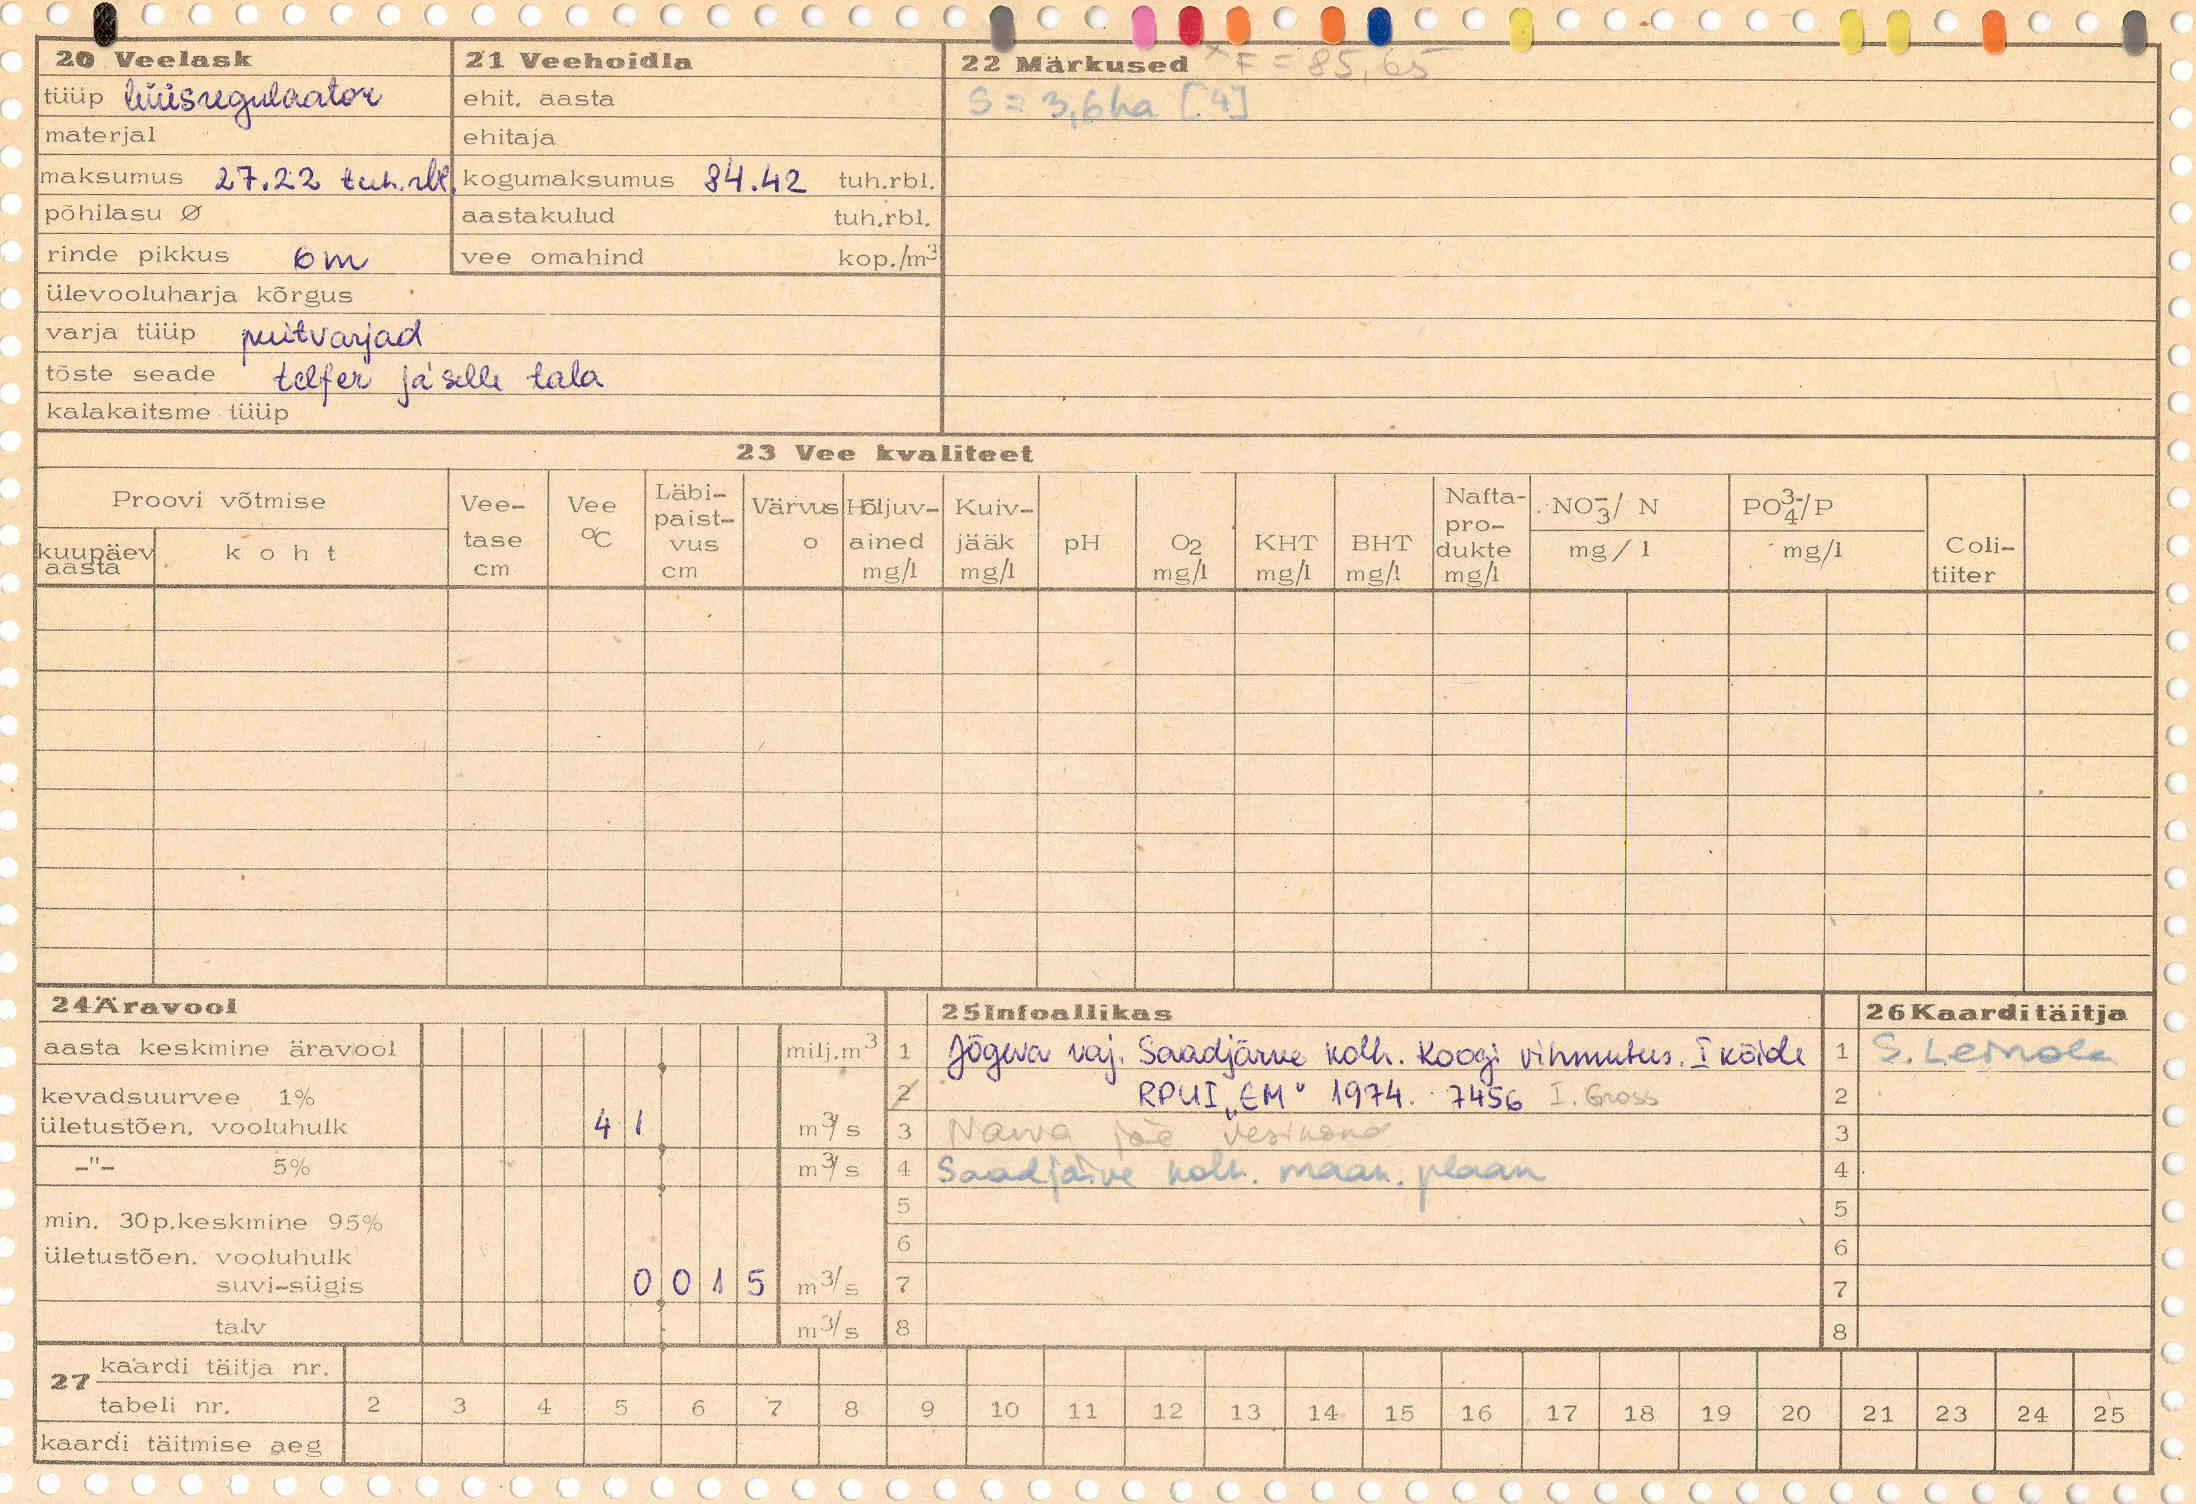 20 Veelask
tüüp lüüsregulaator
materjal
maksumus 27.22 tuh.rbl.
põhilasu Ø
rinde pikkus 6m
ülevooluharja kõrgus
varja tüüp puitvarjad
tõste seade telfer ja selle tala
kalakaitsme tüüp
21 Veehoidla
ehit. aasta
ehitaja
kogumaksumus 84.42 tuh.rbl.
aastakulud tuh.rbl.
vee omahind kop./m³
22 Märkused × F = 85,65
S = 3,6ha [4]
23 Vee kvaliteet
Proovi võtmise
kuupäev aasta
koht
Vee-tase cm
Vee °C
Läbi-paist-vus cm
Värvus o
Hõljuv-ained mg/l
Kuiv-jääk mg/l
pH
O2 mg/l
KHT mg/l
BHT mg/l
Nafta-pro-dukte mg/l
NO3⁻/ N mg/l
PO4³⁻/P mg/l
Coli-tiiter
24 Äravool
aasta keskmine äravool milj.m³
kevadsuurvee 1%
ületustõen. vooluhulk 41 m³/s
-"- 5% m³/s
min. 30p.keskmine 95%
ületustõen. vooluhulk
suvi-sügis 0 0 1 5 m³/s
talv m³/s
25 Infoallikas
1 Jõgeva raj. Saadjärve kolh. Koogi vihmutus. I köide
2 RPUI „EM" 1974. 7456 I. Gross
3 Narva jõe vesikond
4 Saadjärve kolh. maak. plaan
5
6
7
8
26 Kaarditäitja
1 S. Leinola
2
3
4
5
6
7
8
27 kaardi täitja nr.
tabeli nr. 2 3 4 5 6 7 8 9 10 11 12 13 14 15 16 17 18 19 20 21 23 24 25
kaardi täitmise aeg